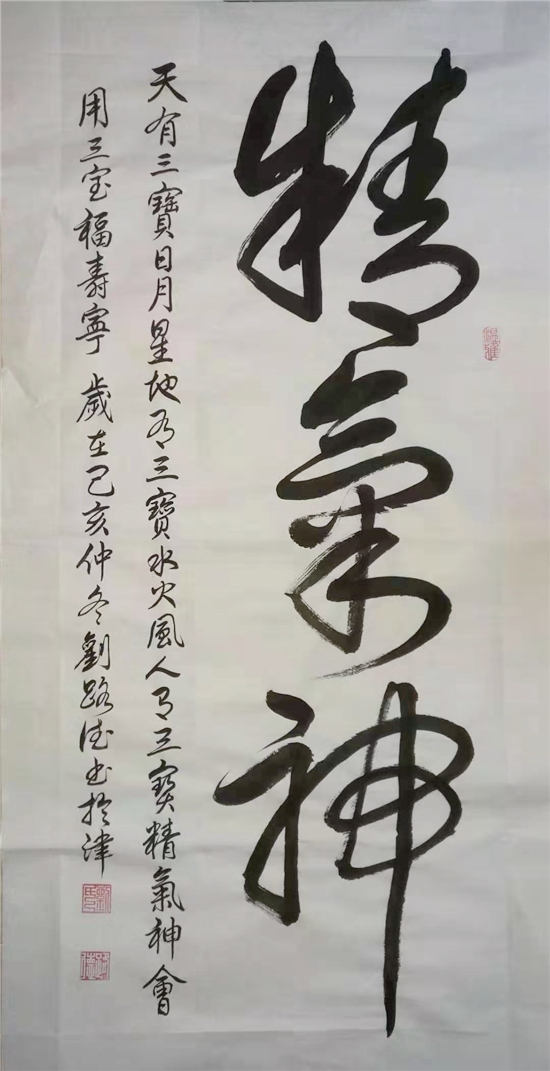 精氣神
天有三寶日月星地有三寶水火風人有三寶精氣神會
用三宝福壽寧 歲在己亥仲冬劉路德书於津